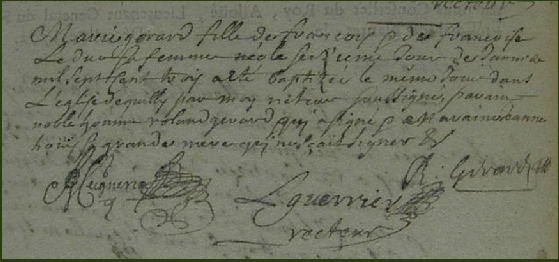 Marie gerard fille de francois & de francoise
Le duc sa femme née le seizieme Jour de Januier
mil sept cent trois a esté baptizée le meme Jour dans
L'eglise de quilly par moy recteur soussigné parain
noble homme roland gerard qui a signé & maraine Jeanne
grande mere qui ne scait signer &
R: Gerard
L guerrier
recteur